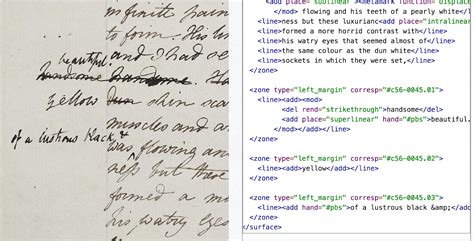 infinite pain
to form. His
beautiful.
and I had se
handsome handsome.
yellow dun skin sca
muscles and a
of a lustrous black &
was flowing an
ness but these
formed a mor
his watry eyes
<mod place="sublinear"><metamark function="displace
</mod> flowing and his teeth of a pearly white</
<line>ness but these luxurianc<add place="intralinea
<line>formed a more horrid contrast with</line>
<line>his watry eyes that seemed almost of</line>
<line>the same colour as the dun white</line>
<line>sockets in which they were set,</line>
</zone>
<zone type="left_margin" corresp="#c56-0045.01">
<line><add><mod>
<del rend="strikethrough">handsome</del>
<add place="superlinear" hand="#pbs">beautiful.
</mod></add></line>
</zone>
<zone type="left_margin" corresp="#c56-0045.02">
<line><add>yellow</add></line>
</zone>
<zone type="left_margin" corresp="#c56-0045.03">
<line><add hand="#pbs">of a lustrous black &amp;</add>
</zone>
</surface>